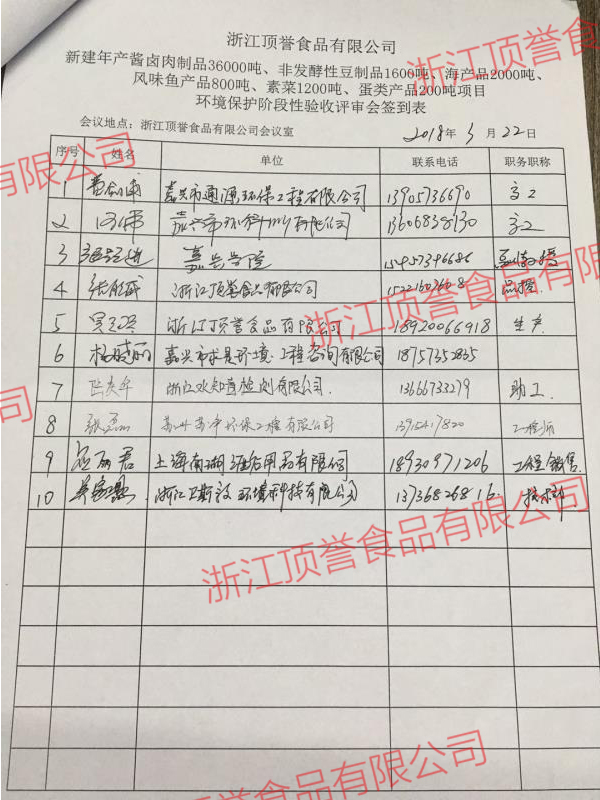 浙江顶誉食品有限公司
新建年产酱卤肉制品36000吨、非发酵性豆制品1600吨、海产品2000吨、
风味鱼产品800吨、素菜1200吨、蛋类产品200吨项目
环境保护阶段性验收评审会签到表
会议地点：浙江顶誉食品有限公司会议室 2018年3月22日
序号 姓名 单位 联系电话 职务职称
1 嘉兴市通源环保工程有限公司 13905736690 高工
2 嘉兴市环科 有限公司 13606838130 高工
3 嘉兴学院 15957396686 副教授
4 浙江顶誉食品有限公司 品控
5 浙江顶誉食品有限公司 18920066918 生产
6 杨晓丽 嘉兴市求是环境工程咨询有限公司 18757352835
7 浙江水知音检测有限公司 13666733279 助工
8 苏州苏净环保工程有限公司 13915417820 工程师
9 上海南湖 有限公司 18930971206 工程销售
10 浙江 环境科技有限公司 13736826816 技术部
浙江顶誉食品有限公司
浙江顶誉食品有限公司
浙江顶誉食品有限公司
浙江顶誉食品有限公司
有限公司
公司